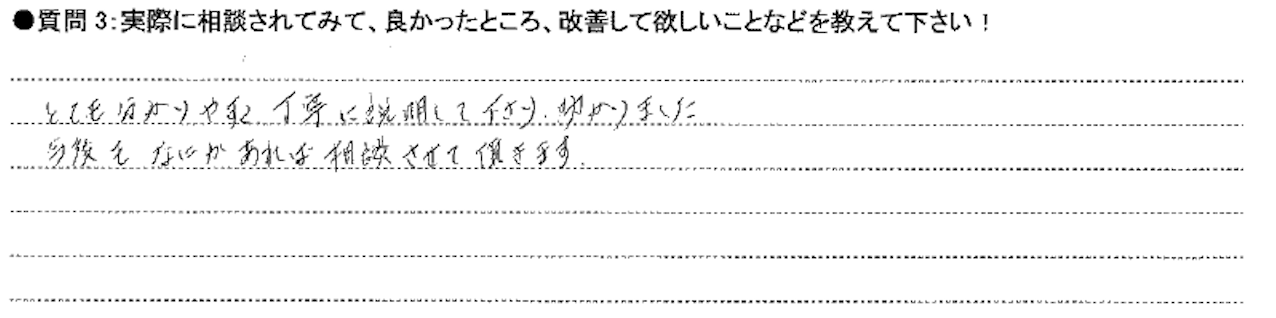 ●質問3:実際に相談されてみて、良かったところ、改善して欲しいことなどを教えて下さい!
とても分かりやすく丁寧に説明して下さり、助かりました
今後もなにかあれば相談させて頂きます.